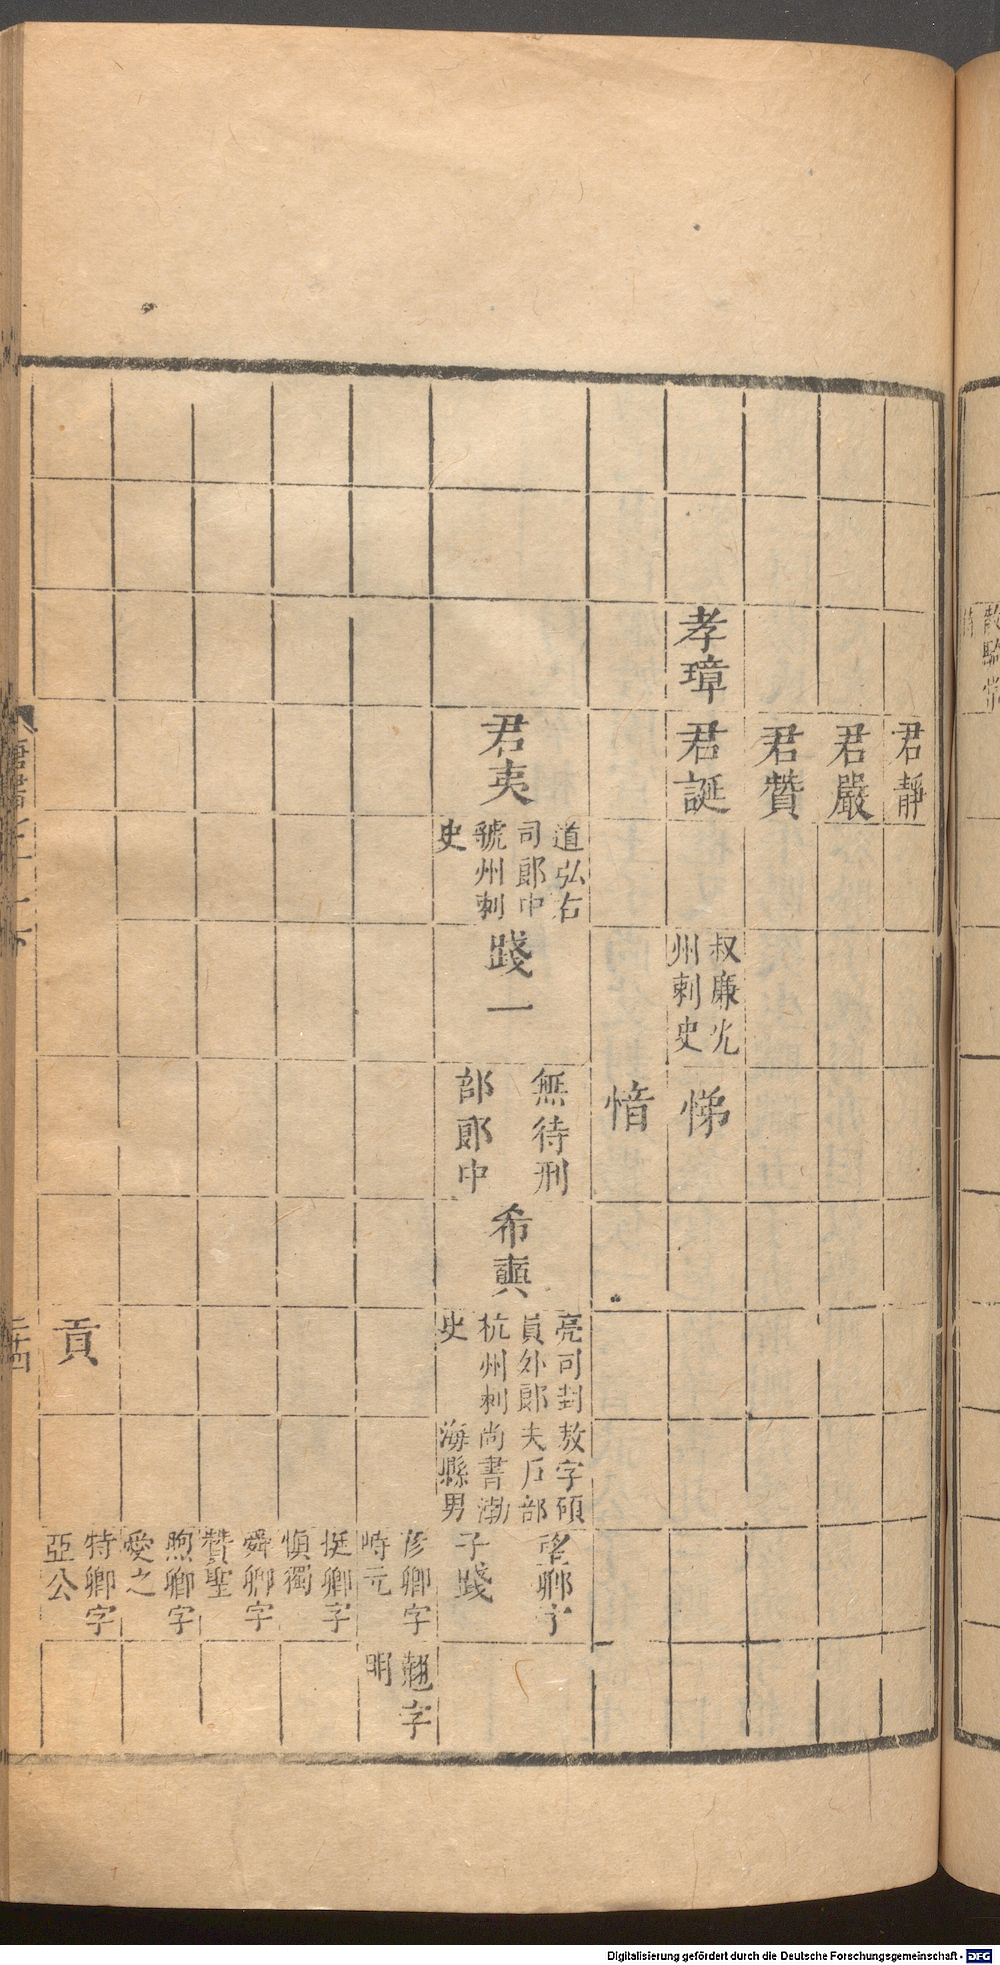 君靜
君嚴
君贊
孝璋
君誕
叔廉光
州刺史
悌
愔
君夷
道弘右
司郎中
虢州刺
史
踐一
無待刑
部郎中
希奭
亮司封
員外郎
杭州刺
史
敖字碩
夫戶部
尚書渤
海縣男
望卿字
子踐
彥卿字
時元
翹字
明
挺卿字
慎獨
舜卿字
贊聖
煦卿字
愛之
貢
特卿字
亞公
唐書七十一下
二十四
散騎常
侍
Digitalisierung gefördert durch die Deutsche Forschungsgemeinschaft - DFG